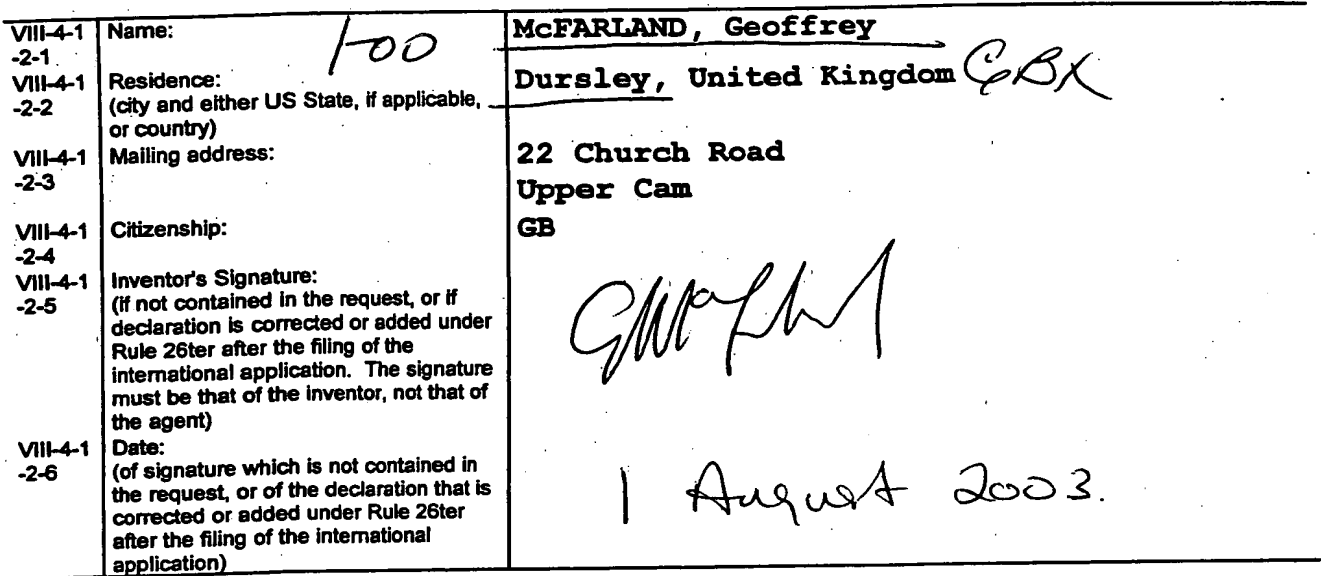 VIII-4-1 Name: 1-00 McFARLAND, Geoffrey
-2-1
VIII-4-1 Residence: Dursley, United Kingdom GBX
-2-2 (city and either US State, if applicable,
or country)
VIII-4-1 Mailing address: 22 Church Road
-2-3 Upper Cam
VIII-4-1 Citizenship: GB
-2-4
VIII-4-1 Inventor's Signature:
-2-5 (if not contained in the request, or if
declaration is corrected or added under
Rule 26ter after the filing of the
international application. The signature
must be that of the inventor, not that of
the agent)
VIII-4-1 Date:
-2-6 (of signature which is not contained in
the request, or of the declaration that is
corrected or added under Rule 26ter
after the filing of the international
application)
1 August 2003.